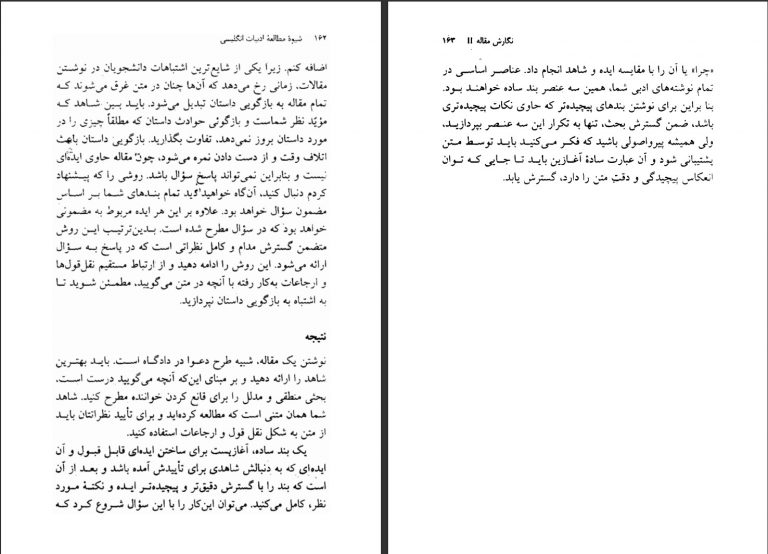 ۱۶۲ شیوهٔ مطالعهٔ ادبیات انگلیسی
اضافه کنم. زیرا یکی از شایع‌ترین اشتباهات دانشجویان در نوشتن
مقالات، زمانی رخ می‌دهد که آن‌ها چنان در متن غرق می‌شوند که
تمام مقاله به بازگویی داستان تبدیل می‌شود. باید بین شاهد که
مؤیّد نظر شماست و بازگوئی حوادث داستان که مطلقاً چیزی را در
مورد داستان بروز نمی‌دهد، تفاوت بگذارید. بازگویی داستان باعث
اتلاف وقت و از دست دادن نمره می‌شود، چون مقاله حاوی ایده‌ای
نیست و بنابراین نمی‌تواند پاسخ سؤال باشد. روشی را که پیشنهاد
کردم دنبال کنید، آن‌گاه خواهید دید تمام بندهای شما بر اساس
مضمون سؤال خواهد بود. علاوه بر این هر ایده مربوط به مضمونی
خواهد بود که در سؤال مطرح شده است. بدین‌ترتیب این روش
متضمن گسترش مدام و کامل نظراتی است که در پاسخ به سؤال
ارائه می‌شود. این روش را ادامه دهید و از ارتباط مستقیم نقل‌قول‌ها
و ارجاعات به‌کار رفته با آنچه در متن می‌گویید، مطمئن شوید تا
به اشتباه به بازگویی داستان نپردازید.
نتیجه
نوشتن یک مقاله، شبیه طرح دعوا در دادگاه است. باید بهترین
شاهد را ارائه دهید و بر مبنای این‌که آنچه می‌گویید درست است،
بحثی منطقی و مدلل را برای قانع کردن خواننده مطرح کنید. شاهد
شما همان متنی است که مطالعه کرده‌اید و برای تأیید نظرانتان باید
از متن به شکل نقل قول و ارجاعات استفاده کنید.
یک بند ساده، آغازیست برای ساختن ایده‌ای قابل قبول و آن
ایده‌ای که به دنبالش شاهدی برای تأییدش آمده باشد و بعد از آن
است که بند را با گسترش دقیق‌تر و پیچیده‌تر ایده و نکتهٔ مورد
نظر، کامل می‌کنید. می‌توان این‌کار را با این سؤال شروع کرد که
نگارش مقاله II ۱۶۳
«چرا» یا آن را با مقایسه ایده و شاهد انجام داد. عناصر اساسی در
تمام نوشته‌های ادبی شما، همین سه عنصر بند ساده خواهند بود.
بنا براین برای نوشتن بندهای پیچیده‌تر که حاوی نکات پیچیده‌تری
باشد، ضمن گسترش بحث، تنها به تکرار این سه عنصر بپردازید،
ولی همیشه پیرواصولی باشید که فکر می‌کنید باید توسط متن
پشتیبانی شود و آن عبارت سادهٔ آغازین باید تا جایی که توان
انعکاس پیچیدگی و دقتِ متن را دارد، گسترش یابد.